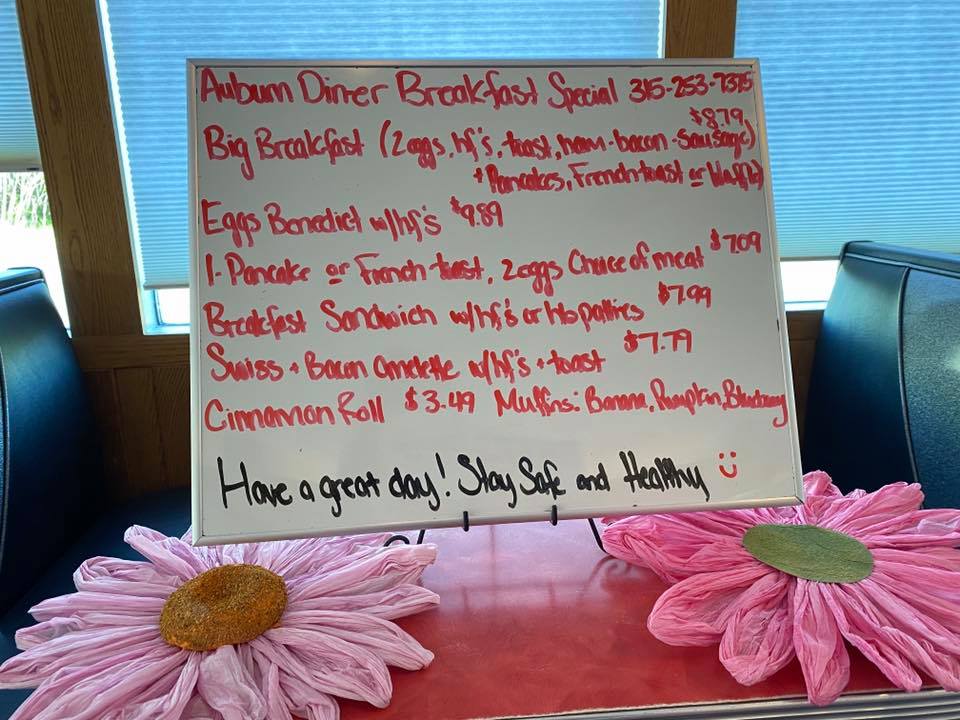 Auburn Diner Breakfast Special 315-253-7375
$8.79
Big Breakfast (2 eggs, hf's, toast, ham-bacon-sausage)
+ Pancakes, French toast or Waffle)
Eggs Benedict w/hf's $9.89
1-Pancake or French toast, 2eggs Choice of meat $7.09
Breakfast Sandwich w/hf's or hb patties $7.99
Swiss + Bacon Omelette w/hf's + toast $7.79
Cinnamon Roll $3.49 Muffins: Banana, Pumpkin, Blueberry
Have a great day! Stay Safe and Healthy